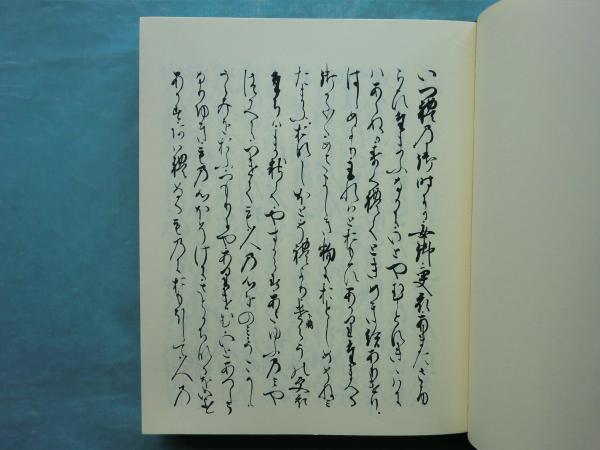 いつれの御時にか女御更衣あまたさふ
らひたまひけるなかにいとやむことなききはに
ハあらぬかすくれてときめき給ありけり
はしめより我ハとおもひあかりたまへる
御かた〱めさましき物におとしめそねミ
たまふおなしほとそれより下らうの更衣
たちハましてやすからすあさゆふのミや
つかへにつけても人の心をのミうこかし
うらみをおふつもりにやありけむいとあつしく
なりゆきもの心ほそけにさとかちなるをいよ〱
あかすあはれなるものにおもほして人の